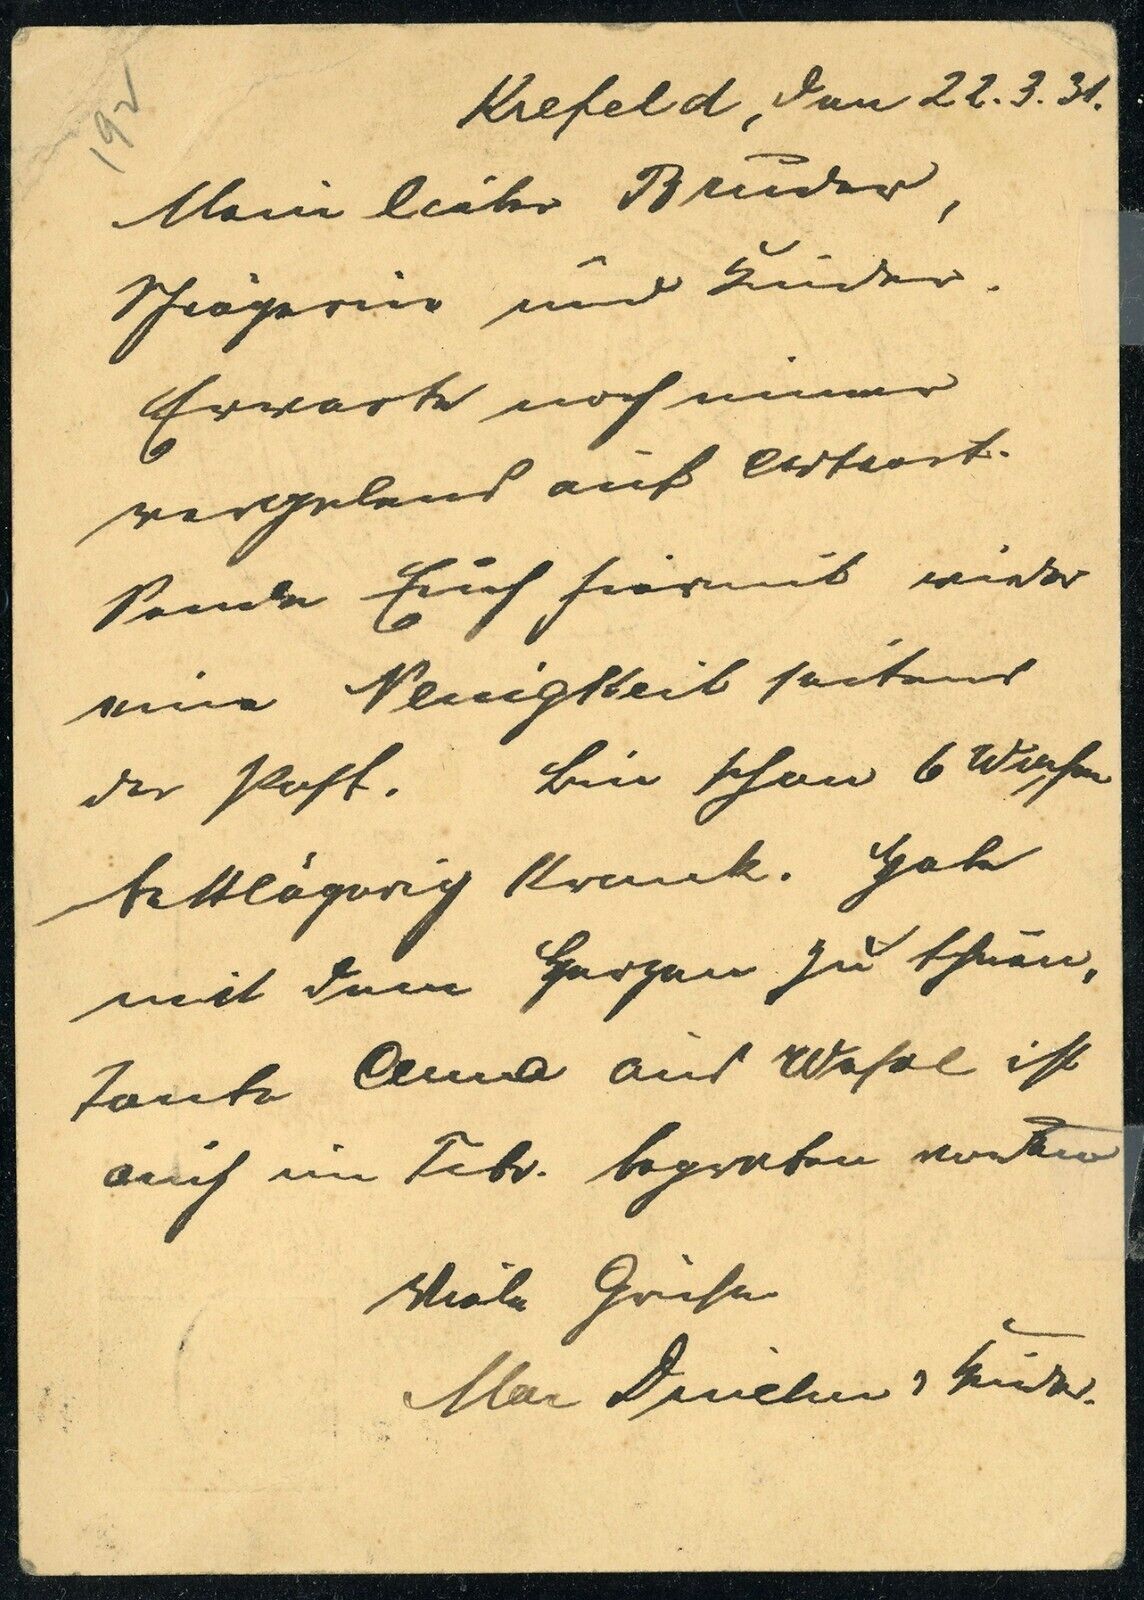 192
Krefeld, den 22.3.31.
Mein lieber Bruder,
Schwägerin und Kinder.
Erwarte noch immer
vergebens auf Antwort.
Sende Euch hiermit wieder
eine Neuigkeit seitens
der Post. Bin schon 6 Wochen
bettlägerig krank. Habe
mit dem Herzen zu thuen,
Tante Anna aus Wesel ist
auch im Febr. begraben worden
Viele Grüße
u. Kinder.